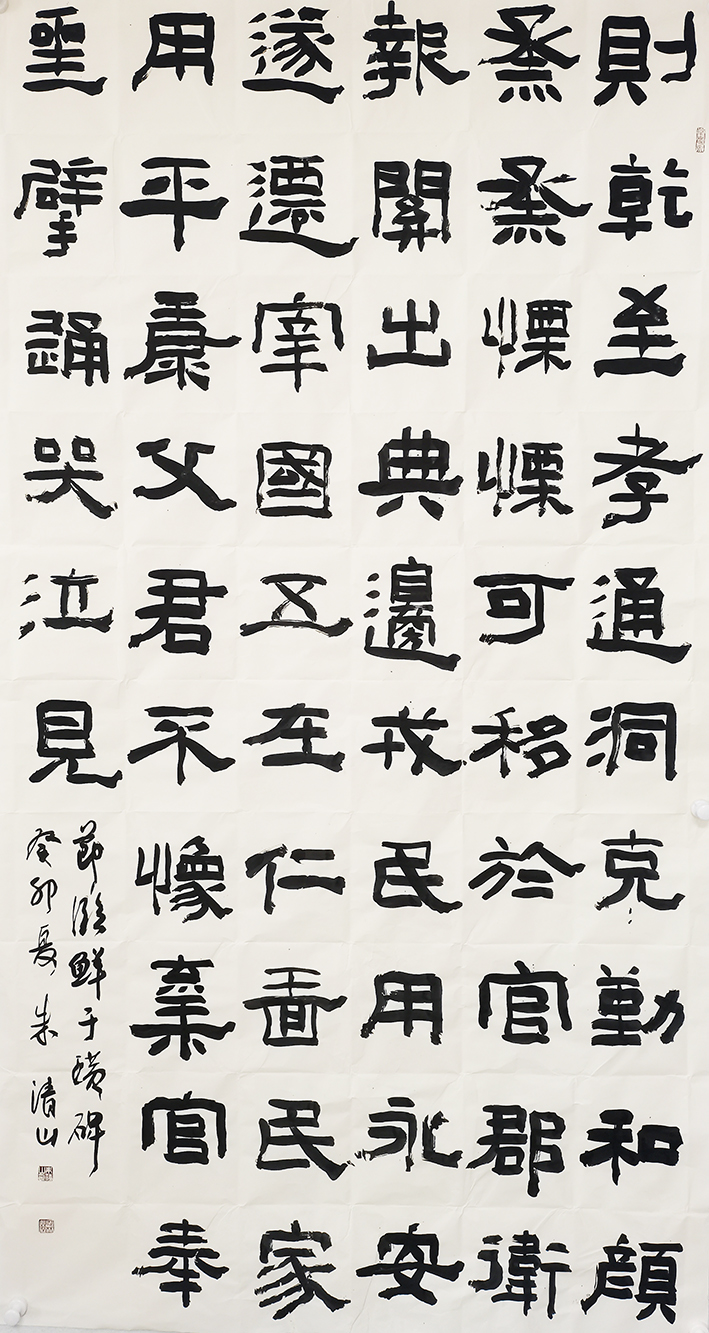 則乾至孝通洞克勤和顔
烝烝慄慄可移於官郡衛
報關出典邊戎民用永安
遂遷宰國五在仁嗇民家
用平康父君不棄官奉
擘踊哭泣見
節臨鮮于璜碑
癸卯夏朱清山